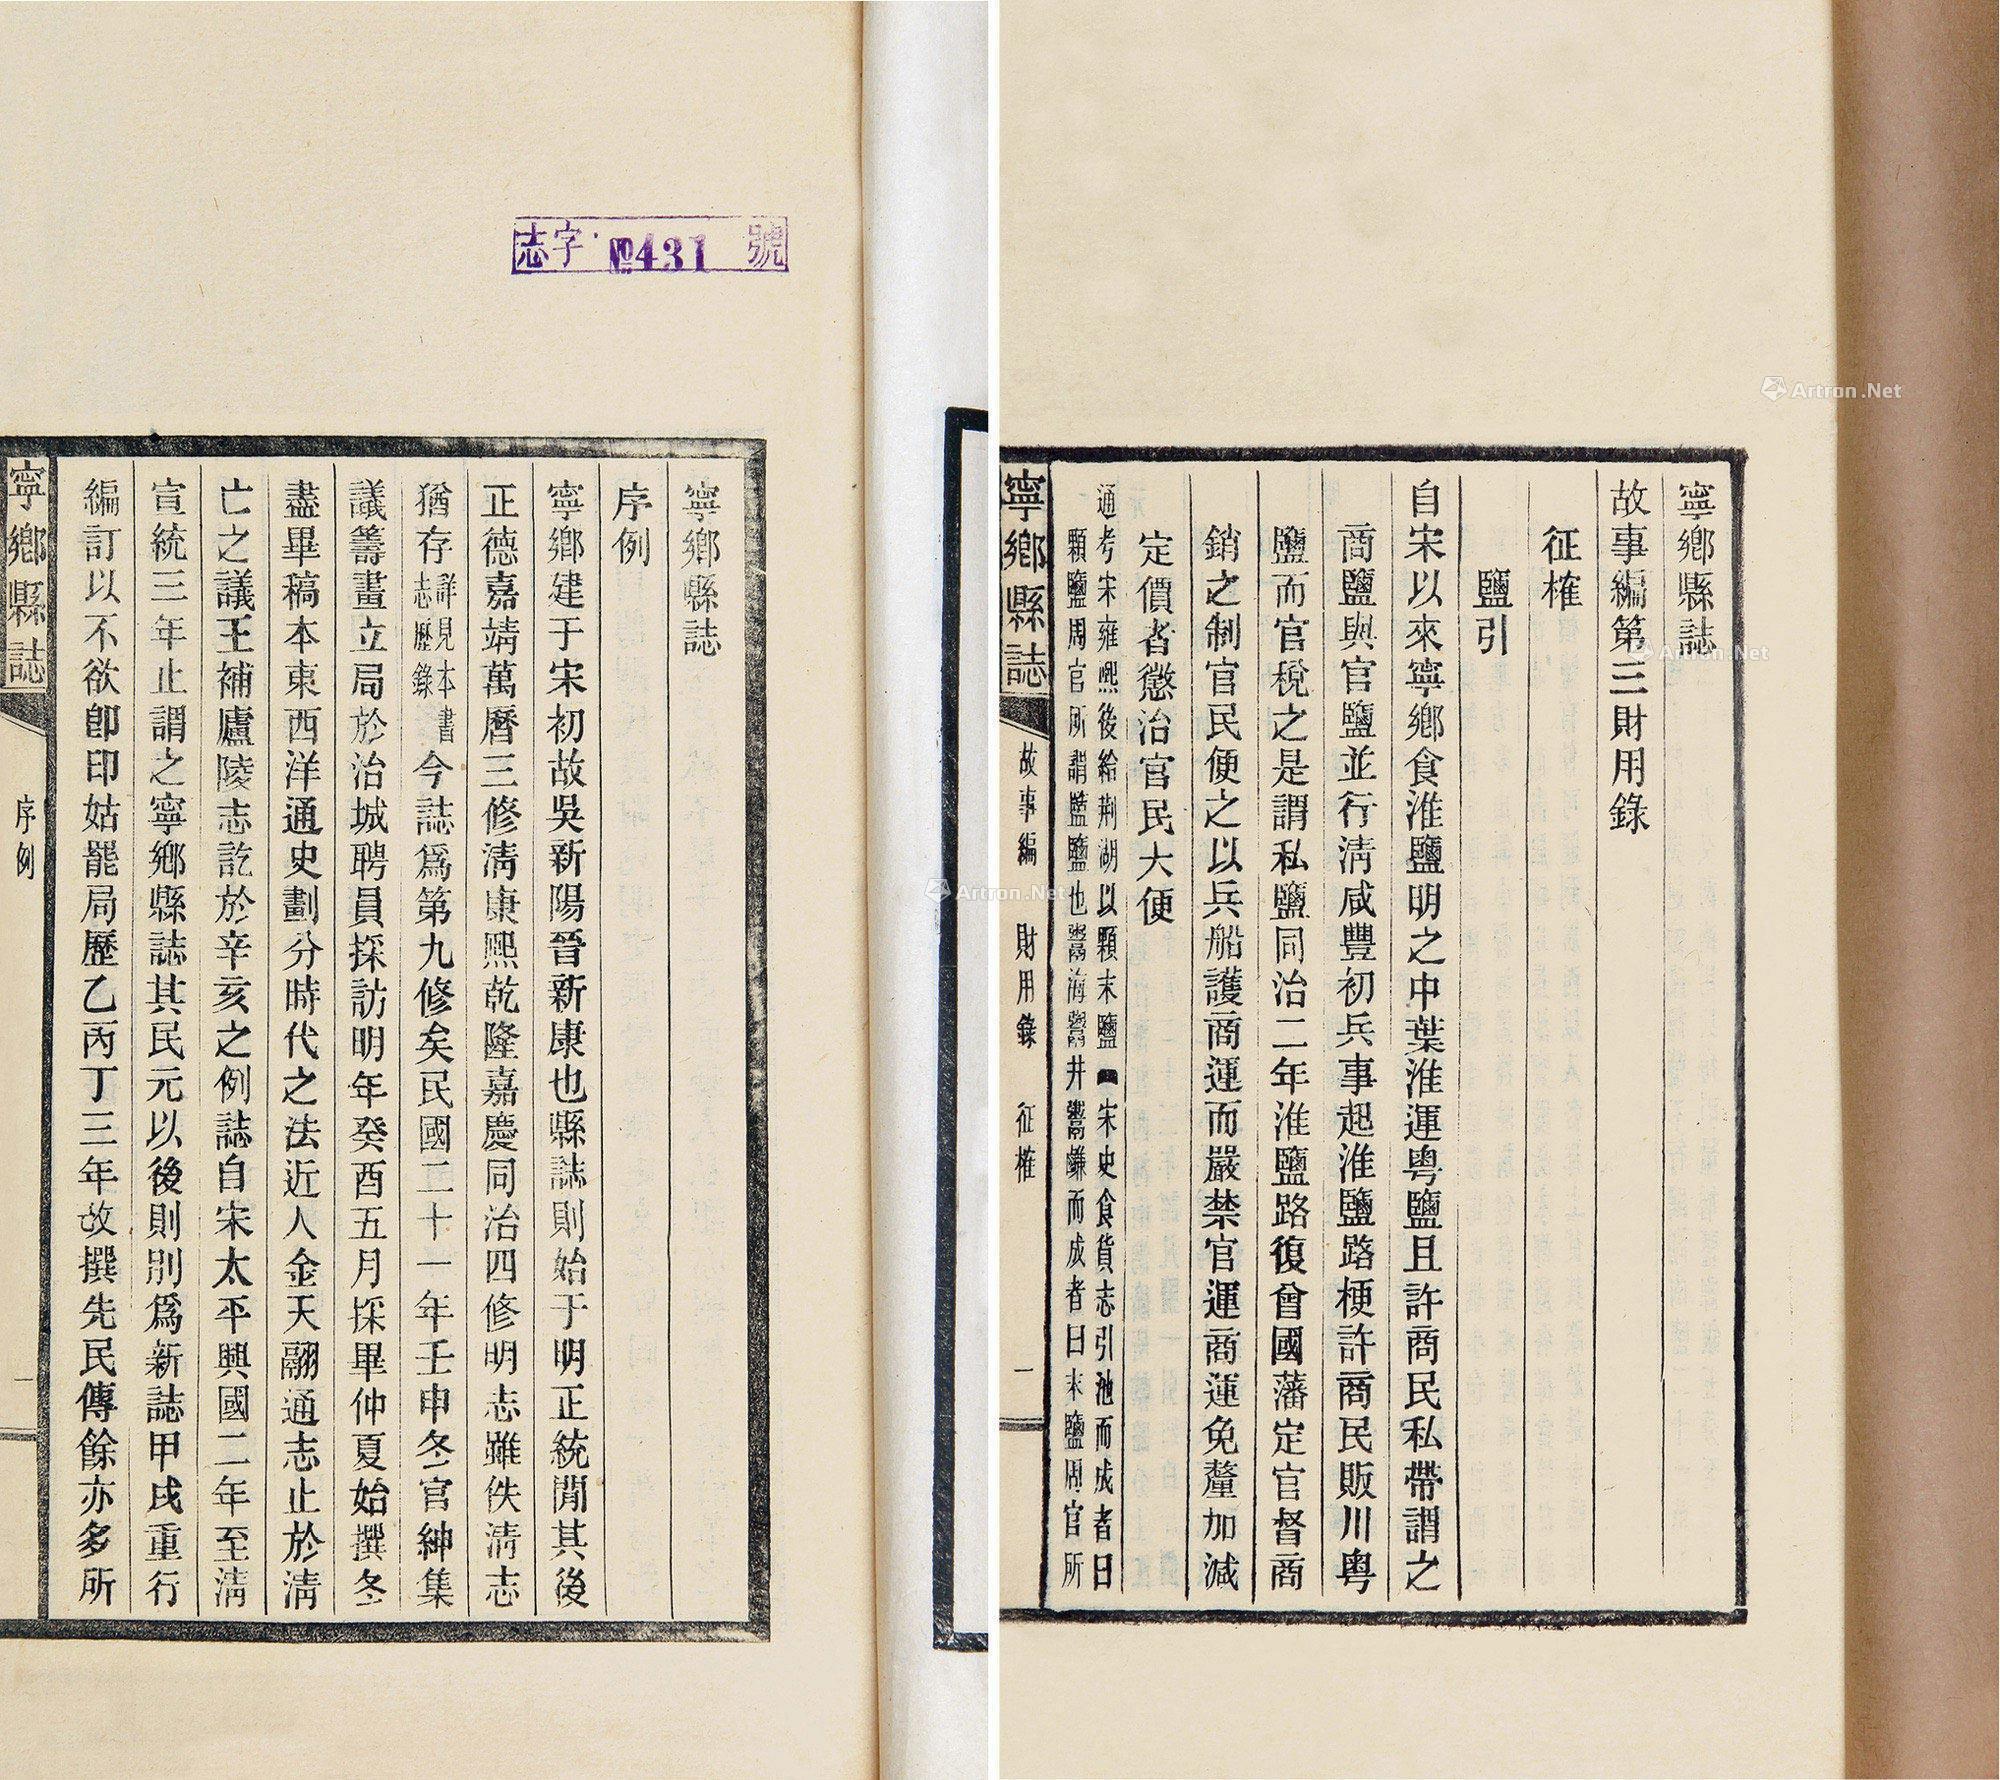 寧鄉縣誌
故事編第三財用錄
征榷
鹽引
自宋以來寧鄉食淮鹽明之中葉淮運粵鹽且許商民私帶謂之
商鹽與官鹽並行清咸豐初兵事起淮鹽路梗許商民販川粵
鹽而官稅之是謂私鹽同治二年淮鹽路復曾國藩定官督商
銷之制官民便之以兵船護商運而嚴禁官運商運免釐加減
定價者懲治官民大便
通考宋雍熙後給荆湖以顆末鹽 宋史食貨志引池而成者曰
顆鹽周官所謂鹽鹽也鬻海鬻井鬻鹻而成者曰末鹽周官所
寧鄉縣誌 故事編 財用錄 征榷 一
志字 №431 號
寧鄉縣誌
序例
寧鄉建于宋初故吳新陽晉新康也縣誌則始于明正統閒其後
正德嘉靖萬曆三修清康熙乾隆嘉慶同治四修明志雖佚清志
猶存詳見本書志歷錄今誌爲第九修矣民國二十一年壬申冬官紳集
議籌畫立局於治城聘員採訪明年癸酉五月採畢仲夏始撰冬
盡畢稿本東西洋通史劃分時代之法近人金天翮通志止於清
亡之議王補廬陵志訖於辛亥之例誌自宋太平興國二年至清
宣統三年止謂之寧鄉縣誌其民元以後則別爲新誌甲戌重行
編訂以不欲卽印姑罷局歷乙丙丁三年故撰先民傳餘亦多所
寧鄉縣誌 序例 一
Artron.Net
Artron.Net
Artron.Net